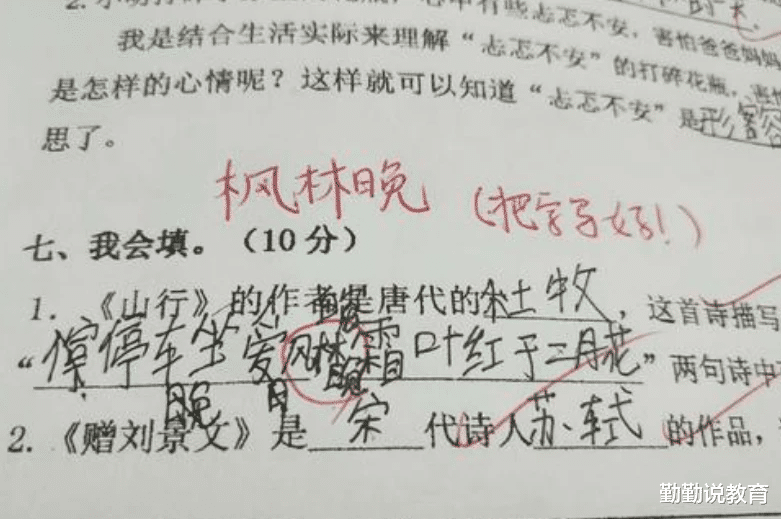 心中有些忐忑不安,害怕爸爸妈妈
我是结合生活实际来理解“忐忑不安”的打碎花瓶,害怕
是怎样的心情呢?这样就可以知道“忐忑不安”是形容
思了。
枫林晚 (把字写好!)
七、我会填。(10分)
1.《山行》的作者是唐代的杜牧,这首诗描写
“停停车坐爱枫林晚霜叶红于二月花”两句诗中
2.《赠刘景文》是 宋 代诗人苏轼 的作品,
勤勤说教育